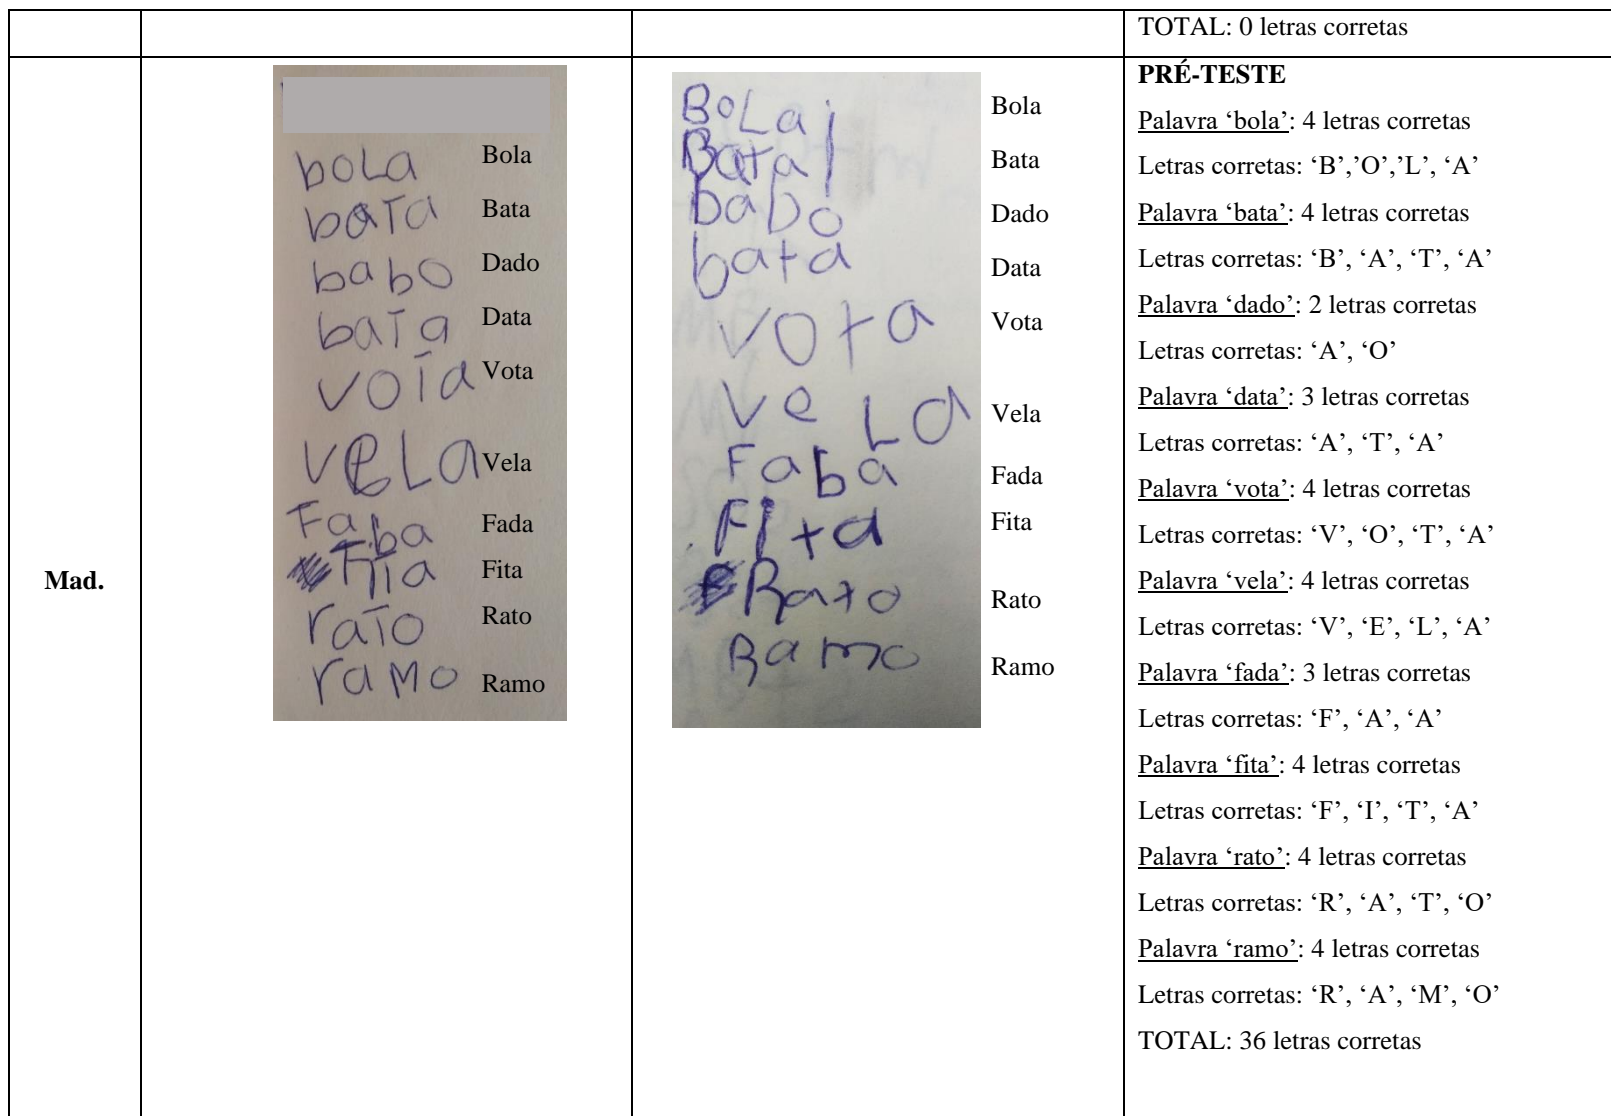 TOTAL: 0 letras corretas
Mad.
bola Bola
bata Bata
babo Dado
bata Data
vota Vota
veLa Vela
Faba Fada
Fita Fita
rato Rato
raMo Ramo
BoLa Bola
Bata Bata
babo Dado
bata Data
vota Vota
ve La Vela
Faba Fada
Fita Fita
Rato Rato
Ramo Ramo
PRÉ-TESTE
Palavra ‘bola’: 4 letras corretas
Letras corretas: ‘B’,’O’,’L’, ‘A’
Palavra ‘bata’: 4 letras corretas
Letras corretas: ‘B’, ‘A’, ‘T’, ‘A’
Palavra ‘dado’: 2 letras corretas
Letras corretas: ‘A’, ‘O’
Palavra ‘data’: 3 letras corretas
Letras corretas: ‘A’, ‘T’, ‘A’
Palavra ‘vota’: 4 letras corretas
Letras corretas: ‘V’, ‘O’, ‘T’, ‘A’
Palavra ‘vela’: 4 letras corretas
Letras corretas: ‘V’, ‘E’, ‘L’, ‘A’
Palavra ‘fada’: 3 letras corretas
Letras corretas: ‘F’, ‘A’, ‘A’
Palavra ‘fita’: 4 letras corretas
Letras corretas: ‘F’, ‘I’, ‘T’, ‘A’
Palavra ‘rato’: 4 letras corretas
Letras corretas: ‘R’, ‘A’, ‘T’, ‘O’
Palavra ‘ramo’: 4 letras corretas
Letras corretas: ‘R’, ‘A’, ‘M’, ‘O’
TOTAL: 36 letras corretas